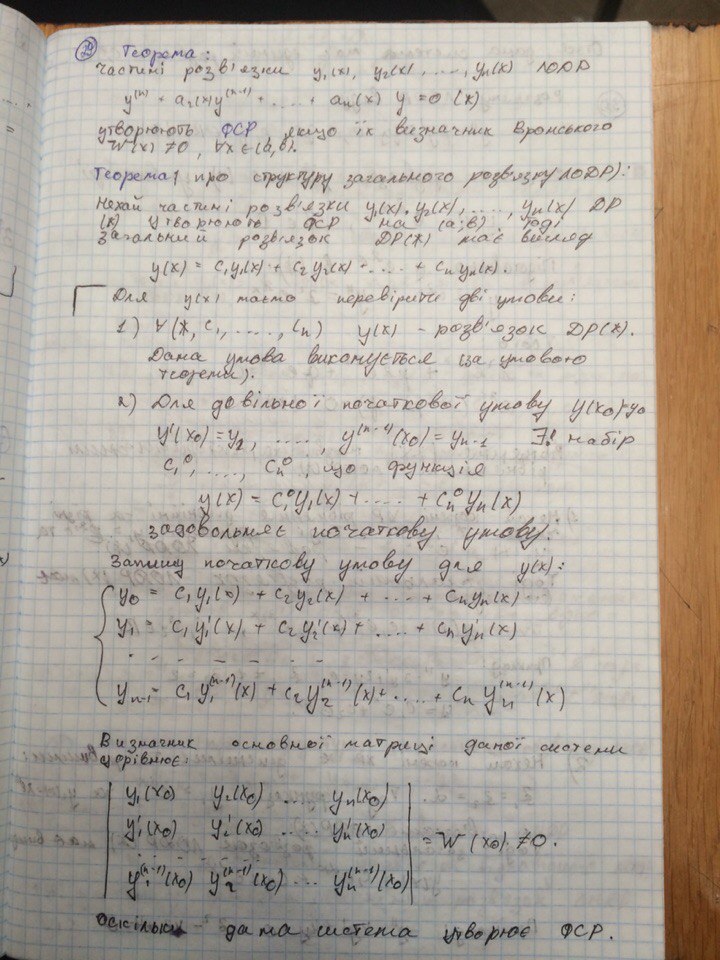 29 Теорема:
Частині розв'язки y₁(x), y₂(x), ...., yₙ(x) ЛОДР
y⁽ⁿ⁾ + a₁(x)y⁽ⁿ⁻¹⁾ + .... + aₙ(x) y = 0 (*)
утворюють ФСР, якщо їх визначник Вронського
W(x) ≠ 0, ∀x∈(a,b).
Теорема (про структуру загального розв'язку ЛОДР):
Нехай частині розв'язки y₁(x), y₂(x), ...., yₙ(x) ДР
(*) утворюють ФСР на (a;b). Тоді
загальний розв'язок ДР(*) має вигляд
y(x) = C₁y₁(x) + C₂y₂(x) + .... + Cₙyₙ(x).
Для y(x) маємо перевірити дві умови:
1) ∀(x, C₁, ...., Cₙ) y(x) - розв'язок ДР(*).
Дана умова виконується (за умовою
теореми).
2) Для довільної початкової умови y(x₀)=y₀
y'(x₀) = y₁, ...., y⁽ⁿ⁻¹⁾(x₀) = yₙ₋₁ ∃! набір
C₁⁰, ...., Cₙ⁰, що функція
y(x) = C₁⁰y₁(x) + .... + Cₙ⁰yₙ(x)
задовольняє початкову умову.
Запишу початкову умову для y(x):
y₀ = C₁y₁(x) + C₂y₂(x) + .... + Cₙyₙ(x)
y₁ = C₁y₁'(x) + C₂y₂'(x) + .... + Cₙyₙ'(x)
- - - - - - - -
yₙ₋₁ = C₁y₁⁽ⁿ⁻¹⁾(x) + C₂y₂⁽ⁿ⁻¹⁾(x) + .... + Cₙyₙ⁽ⁿ⁻¹⁾(x)
Визначник основної матриці даної системи
дорівнює:
| y₁(x₀) y₂(x₀) ... yₙ(x₀) |
| y₁'(x₀) y₂'(x₀) ... yₙ'(x₀) | = W(x₀) ≠ 0.
- - - - - - - -
| y₁⁽ⁿ⁻¹⁾(x₀) y₂⁽ⁿ⁻¹⁾(x₀) ... yₙ⁽ⁿ⁻¹⁾(x₀) |
оскільки дана система утворює ФСР.